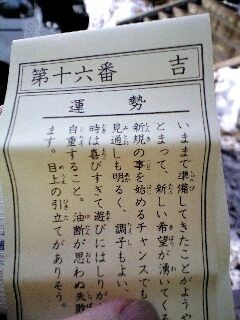 第十六番 吉
運勢
いままで準備してきたことがようや
とまって、新しい希望が湧いてくる
新規の事を始めるチャンスでも
見通しも明るく、調子もよい、
時は喜びすぎて遊びにはしりが
自重すること。油断が思わぬ失敗
ます。目上の引立てがありそう。